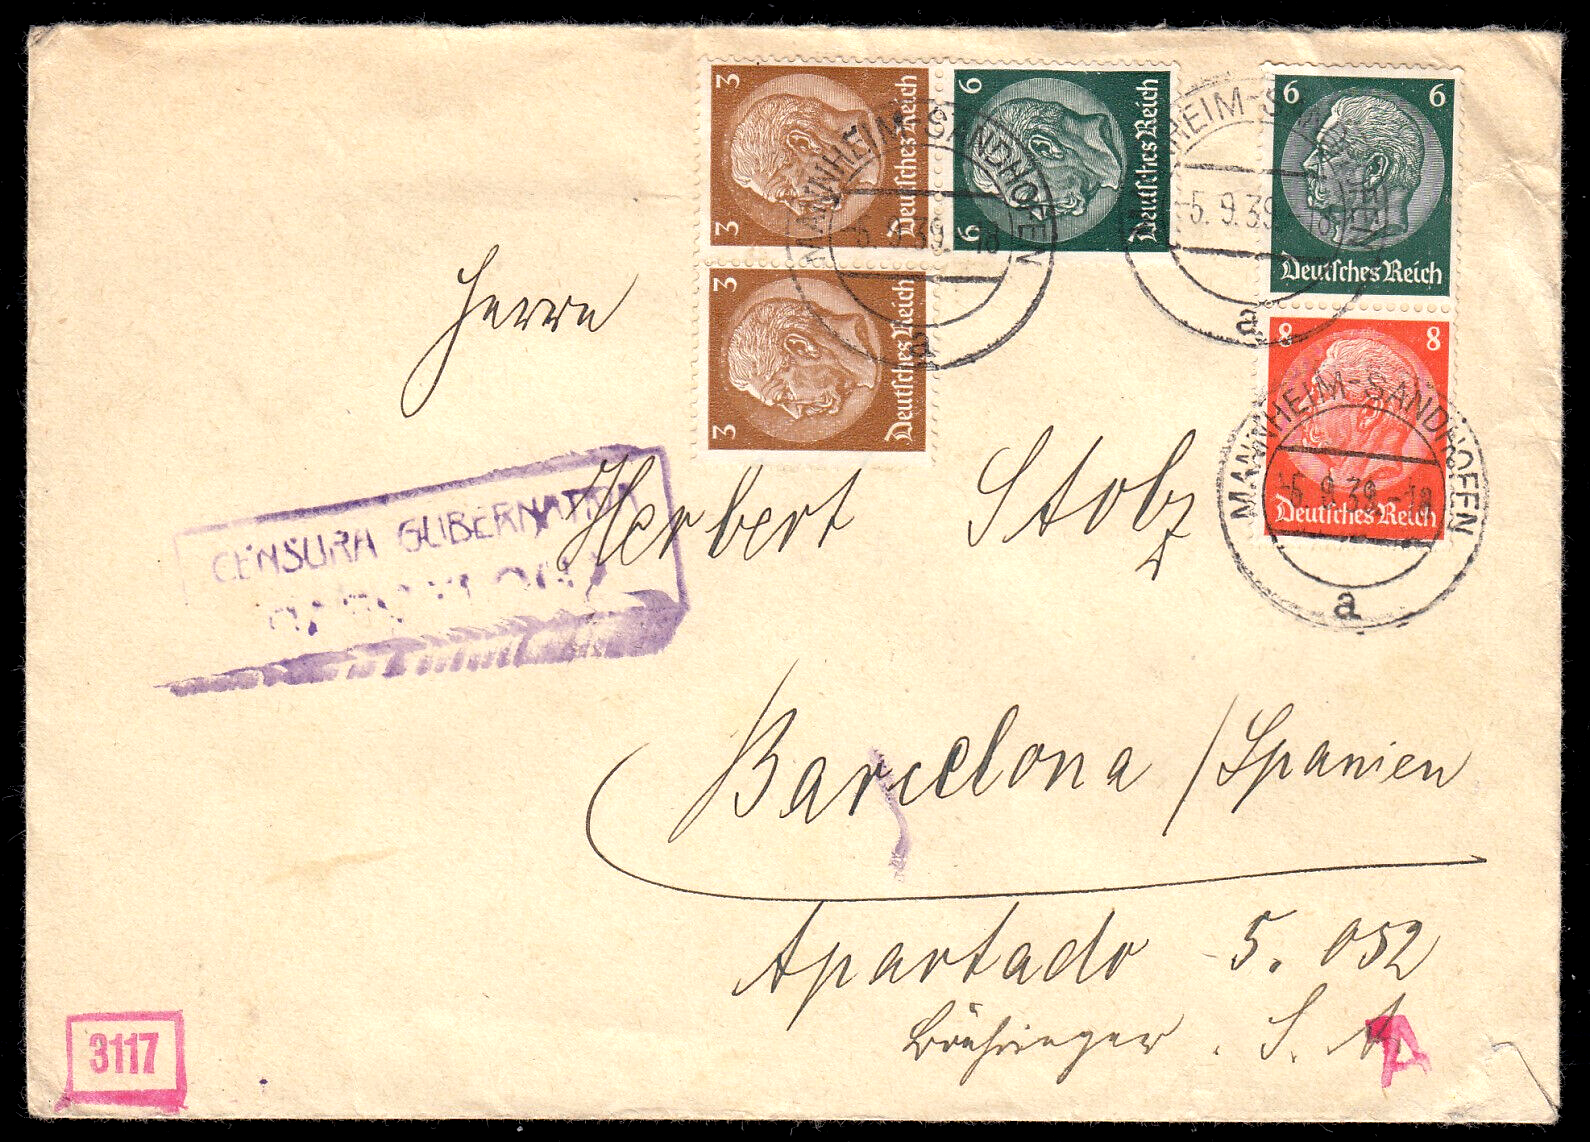 3 3 Deutsches Reich
6 6 Deutsches Reich
6 6 Deutsches Reich
3 3 Deutsches Reich
8 8 Deutsches Reich
MANNHEIM-SANDHOFEN
5.9.39.-18
a
HEIM-S
5.9.39 18
a
MANNHEIM-SANDHOFEN
-5.9.39.-18
a
Herrn
CENSURA GUBERNATIVA
Herbert Stolz
Barcelona / Spanien
Apartado 5.052
S. A
3117
A